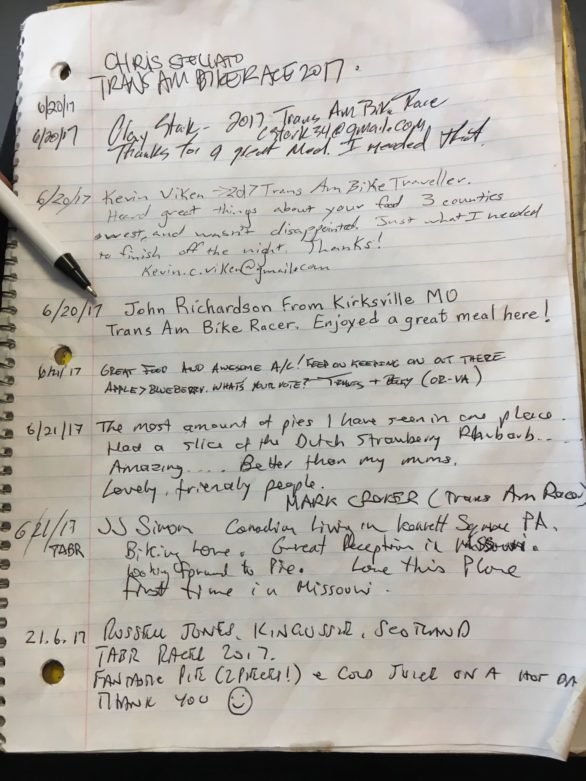 CHRIS STELLATO
6/20/17 TRANS AM BIKE RACE 2017.
6/20/17 Clay Stark - 2017 Trans Am Bike Race
cstark34@gmail.com
Thanks for a great Meal. I needed that.
6/20/17 Kevin Viken → 2017 Trans Am Bike Traveller.
Heard great things about your food 3 counties
west, and wasn't disappointed. Just what I needed
to finish off the night. Thanks!
Kevin.c.viken@gmail.com
6/20/17 John Richardson From Kirksville MO
Trans Am Bike Racer. Enjoyed a great meal here!
6/21/17 GREAT FOOD AND AWESOME A/C! KEEP ON KEEPING ON OUT THERE
APPLE > BLUEBERRY. WHAT'S YOUR VOTE? + (OR-VA)
6/21/17 The most amount of pies I have seen in one place.
Had a slice of the Dutch Strawberry Rhubarb...
Amazing.... Better than my mums.
Lovely, friendly people.
MARK CROKER (Trans Am Racer)
6/21/17 JJ Simon Canadian living in Kennett Square PA.
TABR Biking Love. Great Reception in Missouri.
Looking forward to Pie. Love this Place
first time in Missouri.
21.6.17 RUSSELL JONES, KINGUSSIE, SCOTLAND
TABR RACER 2017.
FANTASTIC PIE (2 PIECES!) & COLD JUICE ON A HOT DA
THANK YOU ☺